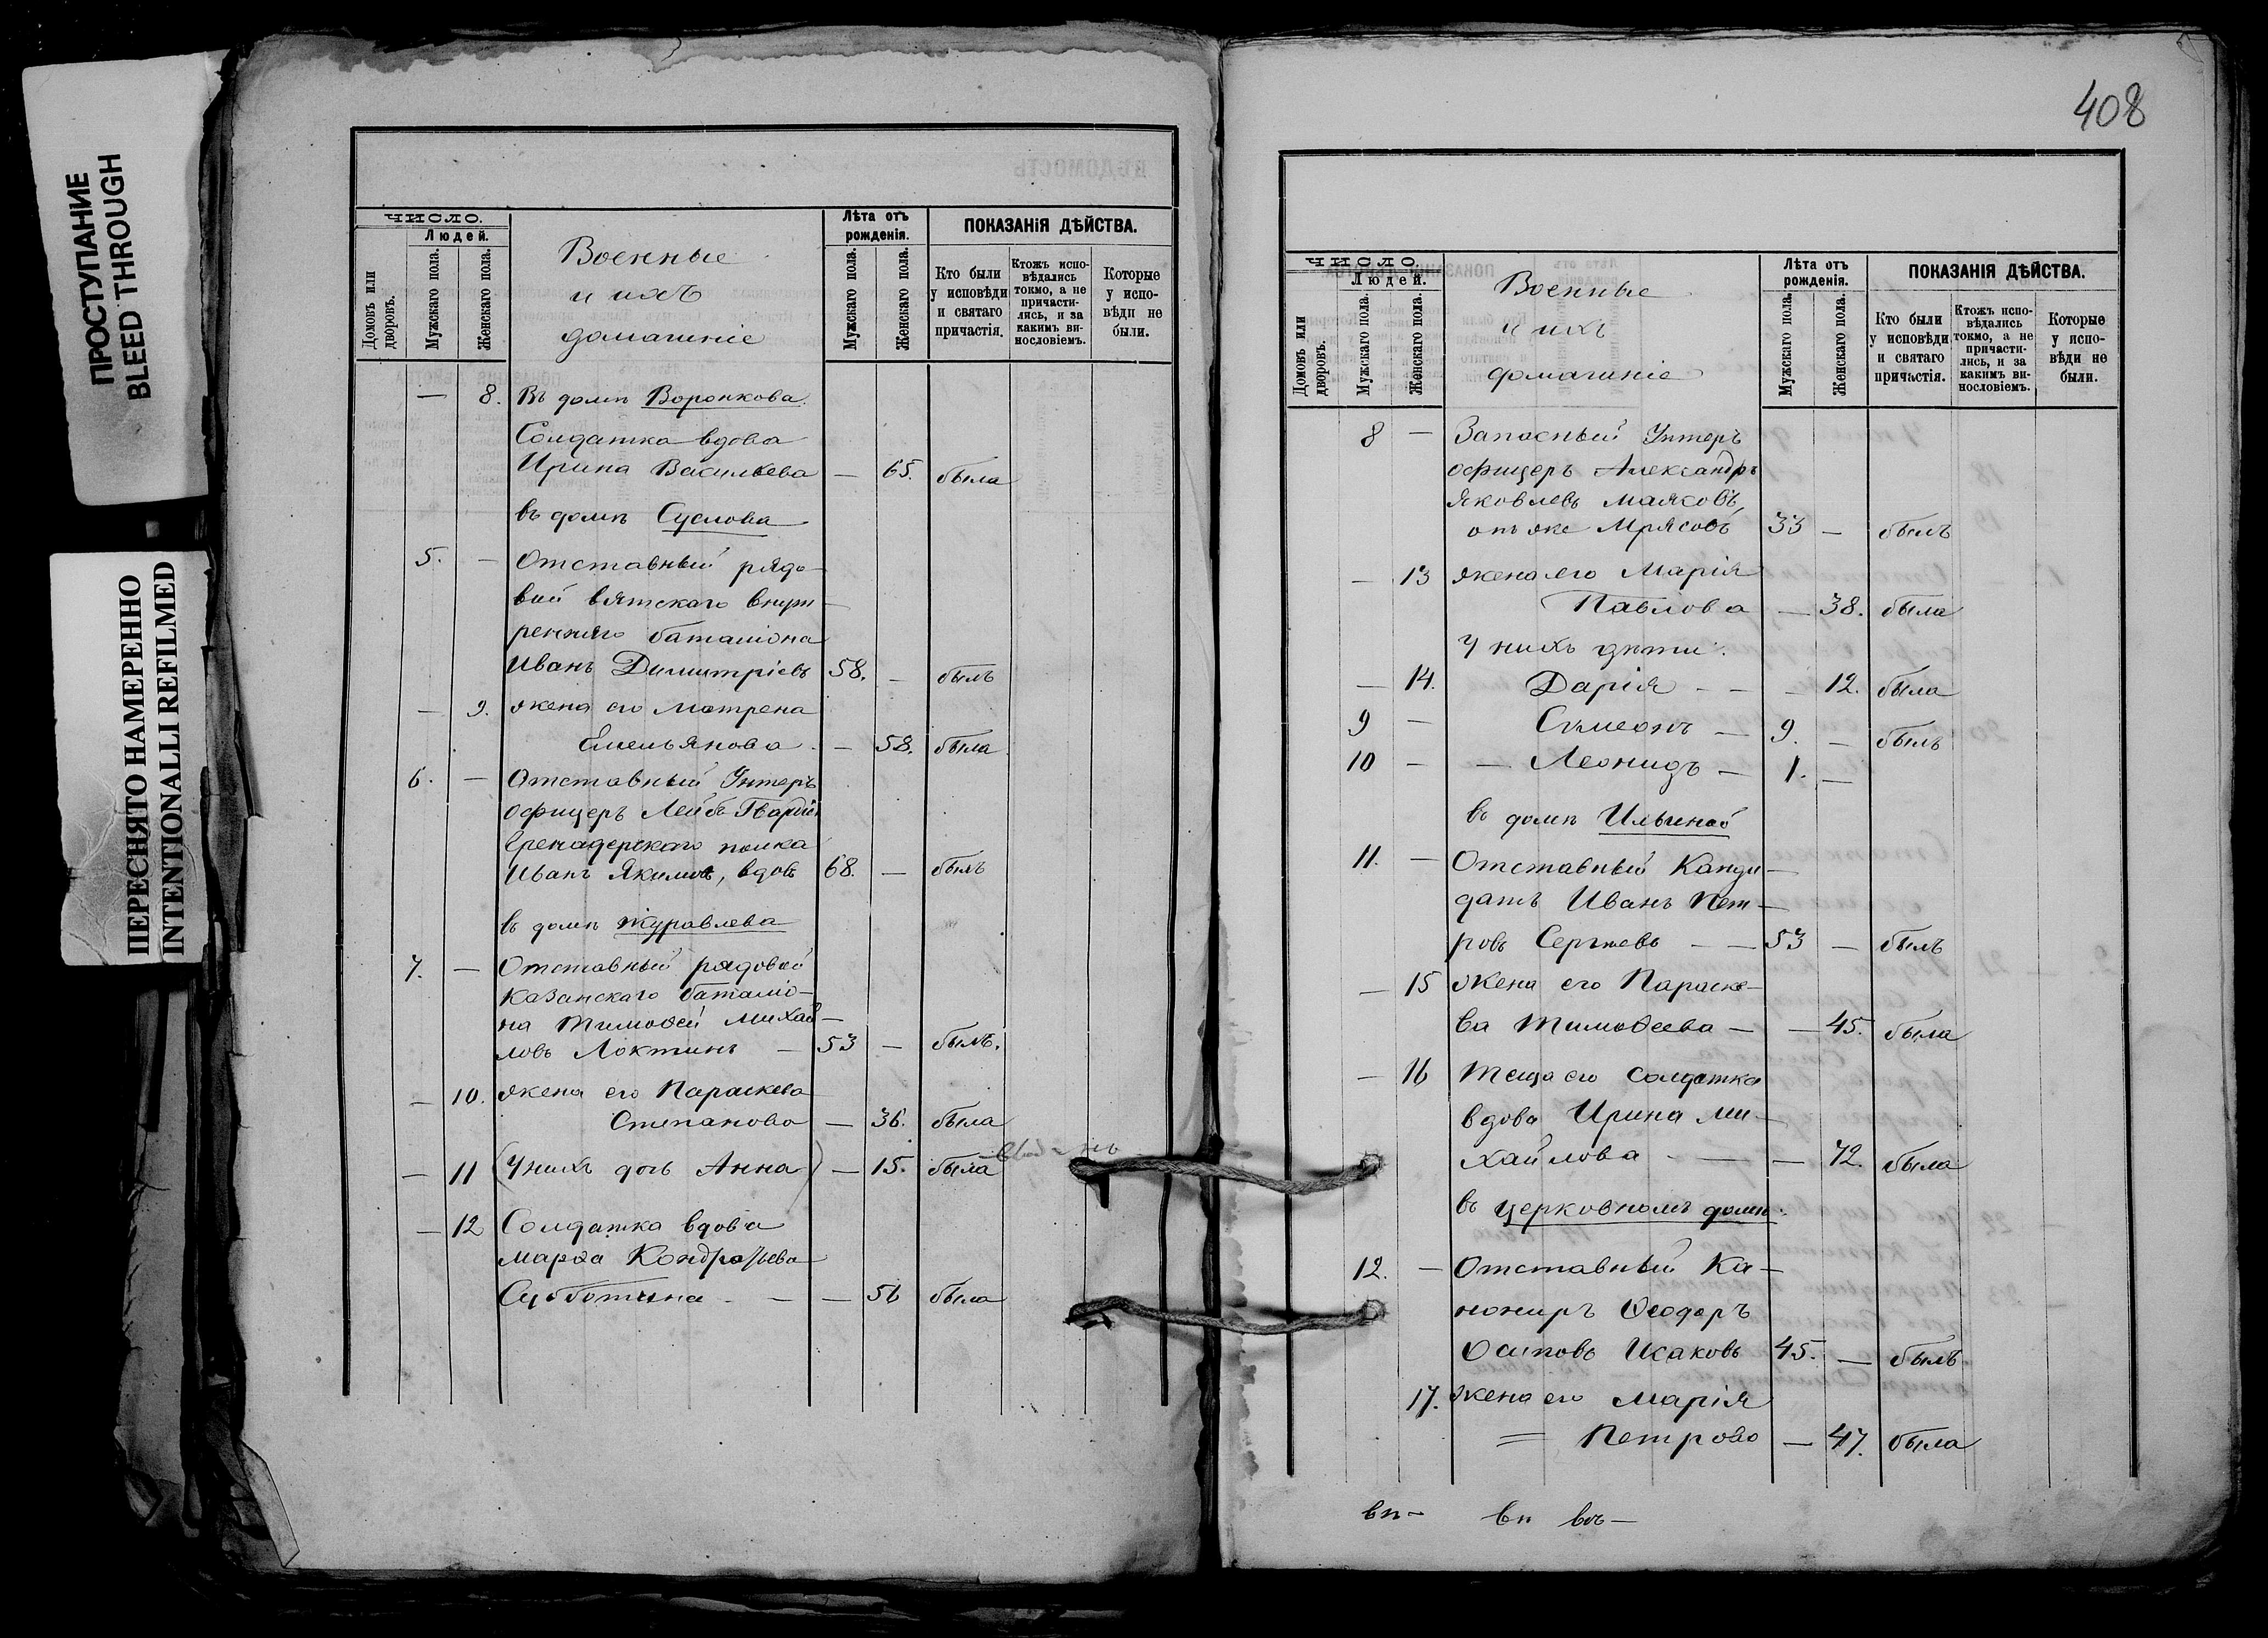 ПРОСТУПАНИЕ
BLEED THROUGH
ПЕРЕСНЯТО НАМЕРЕННО
INTENTIONALLI REFILMED
ЧИСЛО.
Людей.
Домовъ или дворовъ.
Мужскаго пола.
Женскаго пола.
Военные
и ихъ
домашніе
Лѣта отъ
рожденія.
Мужскаго пола.
Женскаго пола.
ПОКАЗАНІЯ ДѢЙСТВА.
Кто были
у исповѣди
и святаго
причастія.
Ктожъ испо-
вѣдались
токмо, а не
причасти-
лись, и за
какимъ ви-
нословіемъ.
Которые
у испо-
вѣди не
были.
— 8. Въ домѣ Воронкова
Солдатка вдова
Ирина Васильева — 65. была
въ домѣ Суслова
5. — Отставный рядо-
вой вятскаго внут-
ренняго баталіона
Иванъ Димитріевъ 58. — былъ
— 9. жена его Матрена
Емельянова — 58. была
6. — Отставный Унтеръ
офицеръ Лейбъ Гвардіи
Гренадерскаго полка
Иванъ Якимовъ, вдовъ 68. — былъ
въ домѣ Журавлева
7. — Отставный рядовой
Казанскаго баталіо-
на Тимоѳей Михай-
ловъ Локтинъ — 53 — былъ.
— 10. жена его Параскева
Степанова — 36. была
— 11 (У нихъ дочь Анна) — 15. была
— 12 Солдатка вдова
Марѳа Кондратьева
Субботина — — 56 была
408
ЧИСЛО.
Людей.
Домовъ или дворовъ.
Мужскаго пола.
Женскаго пола.
Военные
и ихъ
домашніе
Лѣта отъ
рожденія.
Мужскаго пола.
Женскаго пола.
ПОКАЗАНІЯ ДѢЙСТВА.
Кто были
у исповѣди
и святаго
причастія.
Ктожъ испо-
вѣдались
токмо, а не
причасти-
лись, и за
какимъ ви-
нословіемъ.
Которые
у испо-
вѣди не
были.
8 — Запасный Унтеръ
офицеръ Александръ
Яковлевъ Маясовъ,
онъ же Мрясовъ 33 — былъ
— 13 жена его Марія
Павлова — 38. была
У нихъ дѣти:
— 14. Дарія — — — 12. была
9 — Сѵмеонъ — 9. — былъ
10 — — Леонидъ — 1. —
въ домѣ Ильиной
11. — Отставный Канди-
датъ Иванъ Пет-
ровъ Сергѣевъ — — 53 — былъ
— 15 Жена его Параске-
ва Тимоѳеева — — 45. была
— 16 Теща его солдатка
вдова Ирина Ми-
хайлова — — 72. была
въ церковномъ домѣ:
12. — Отставный Ка-
нониръ Ѳеодоръ
Осиповъ Исаковъ 45. — былъ
17. Жена его Марія
= Петрова — 47. была